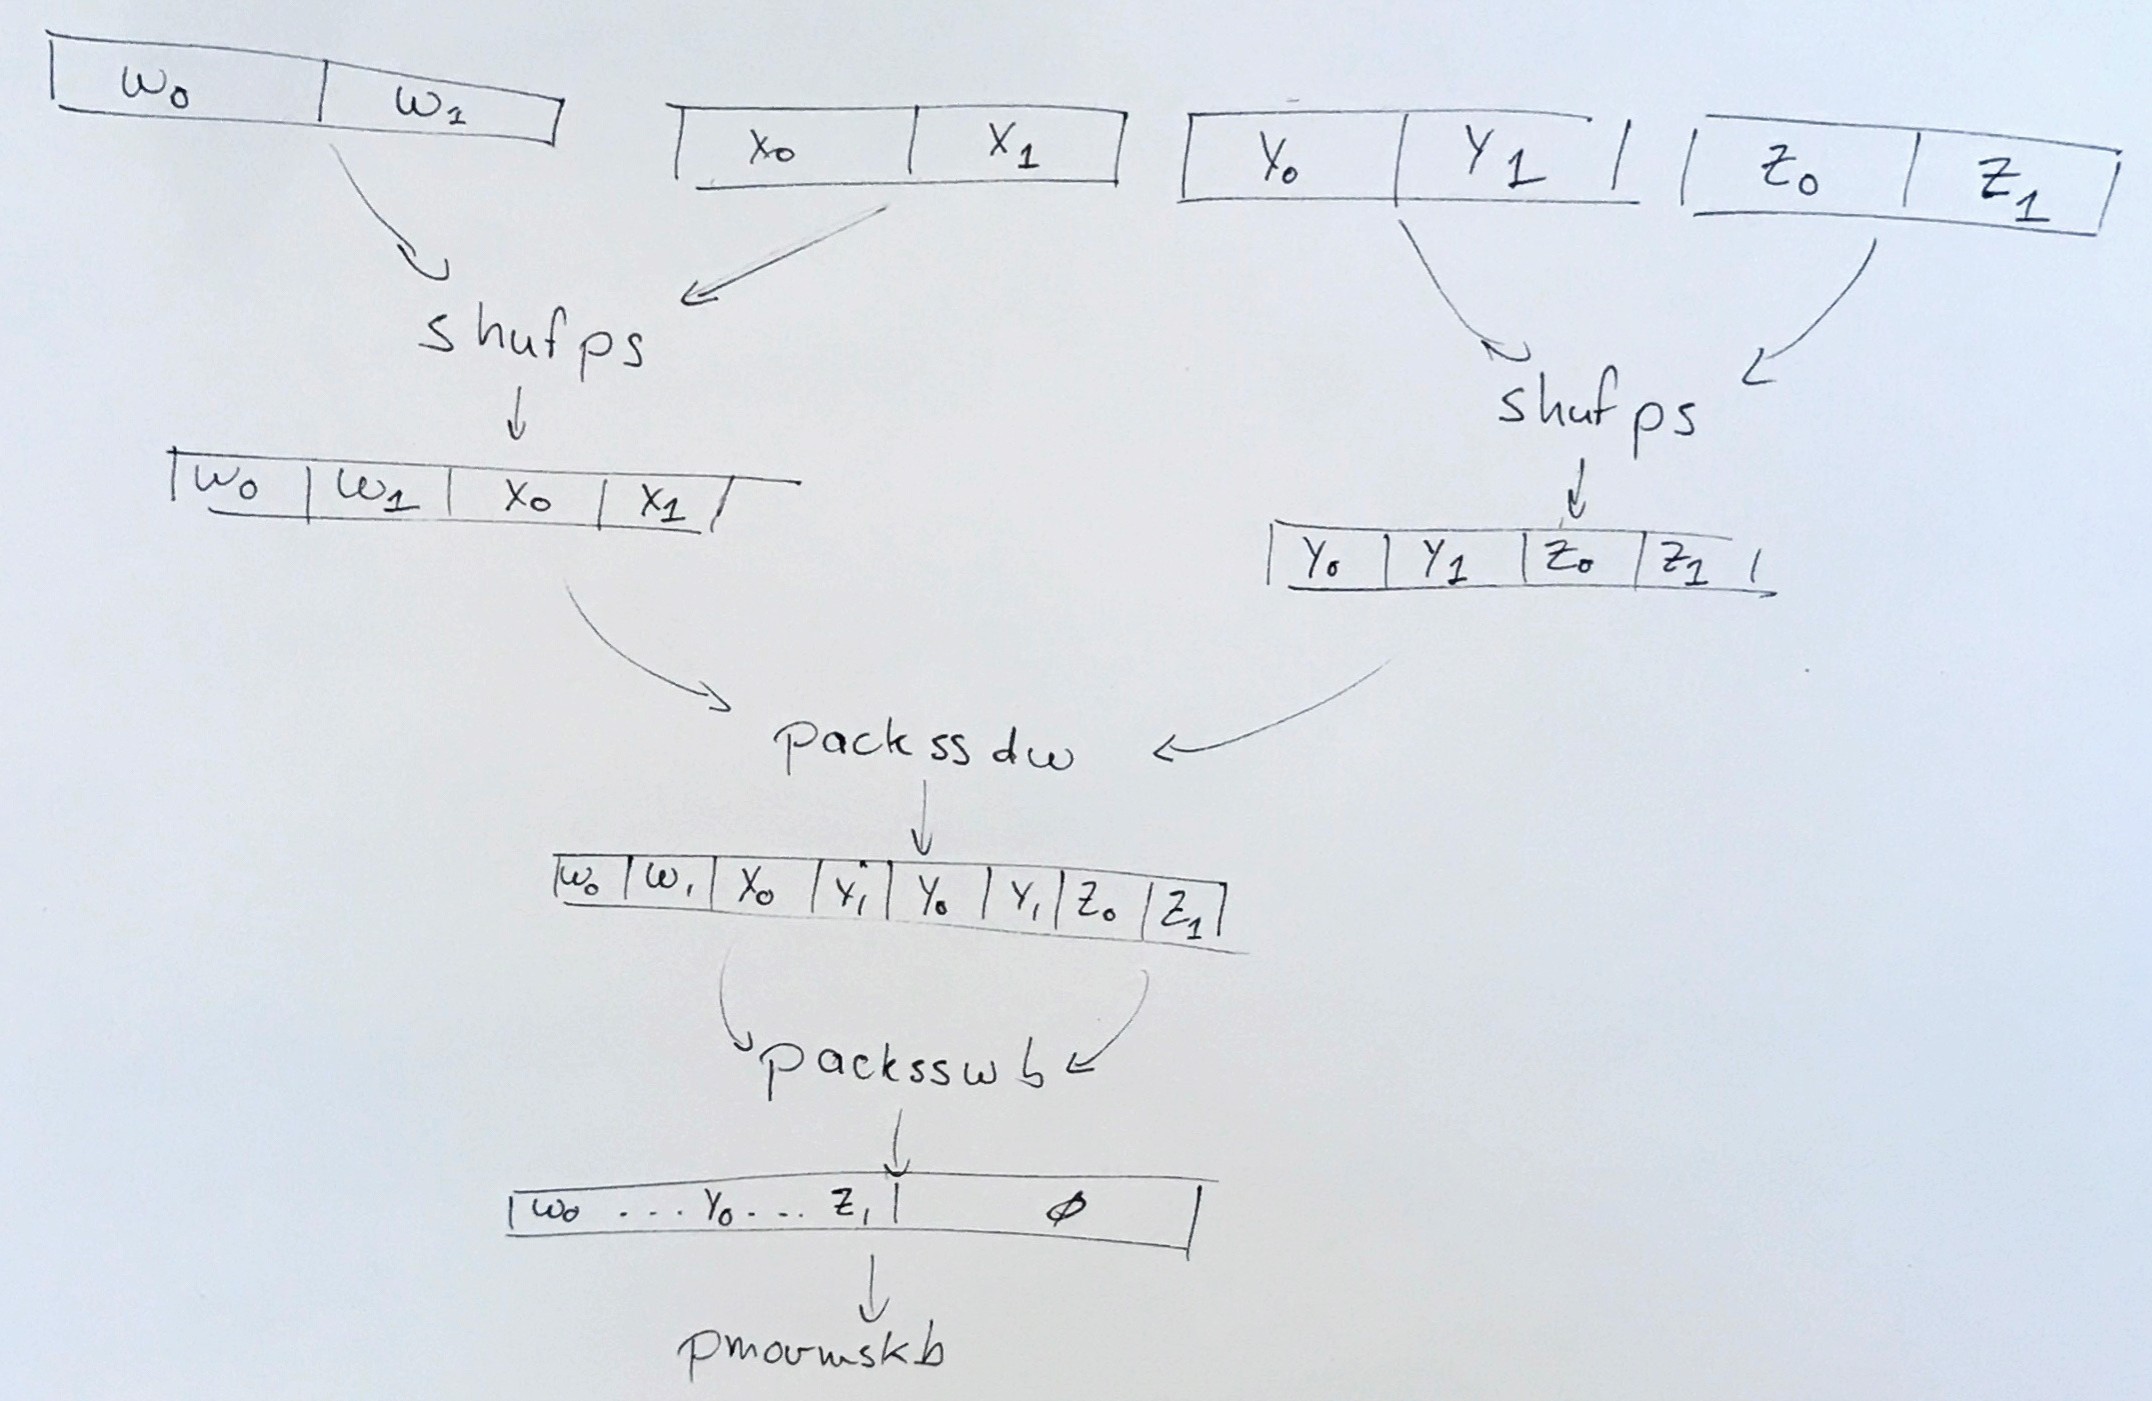 w₀ w₁ x₀ x₁ y₀ y₁ z₀ z₁
shufps shufps
w₀ w₁ x₀ x₁ y₀ y₁ z₀ z₁
packssdw
w₀ w₁ x₀ x₁ y₀ y₁ z₀ z₁
packsswb
w₀ ... y₀ ... z₁ ∅
pmovmskb